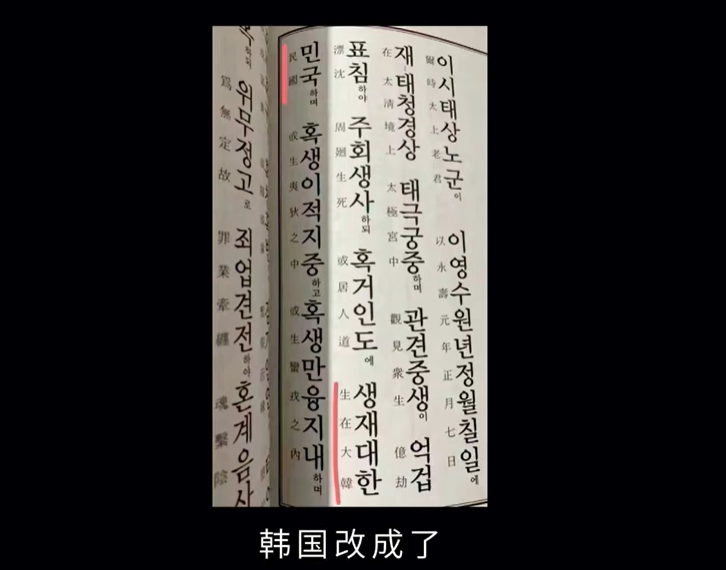 이시태상노군이 이영수원년정월칠일에
爾時太上老君 以永壽元年正月七日
재태청경상 태극궁중하며 관견중생이 억겁
在太淸境上 太極宮中 觀見衆生 億劫
표침하야 주회생사하되 혹거인도에 생재대한
漂沈 周廻生死 或居人道 生在大韓
민국하며 혹생이적지중하고 혹생만융지내하며
民國 或生夷狄之中 或生蠻戎之內
위무정고로 죄업견전하야 혼계음사
爲無定故 罪業牽纏 魂繫陰
韩国改成了